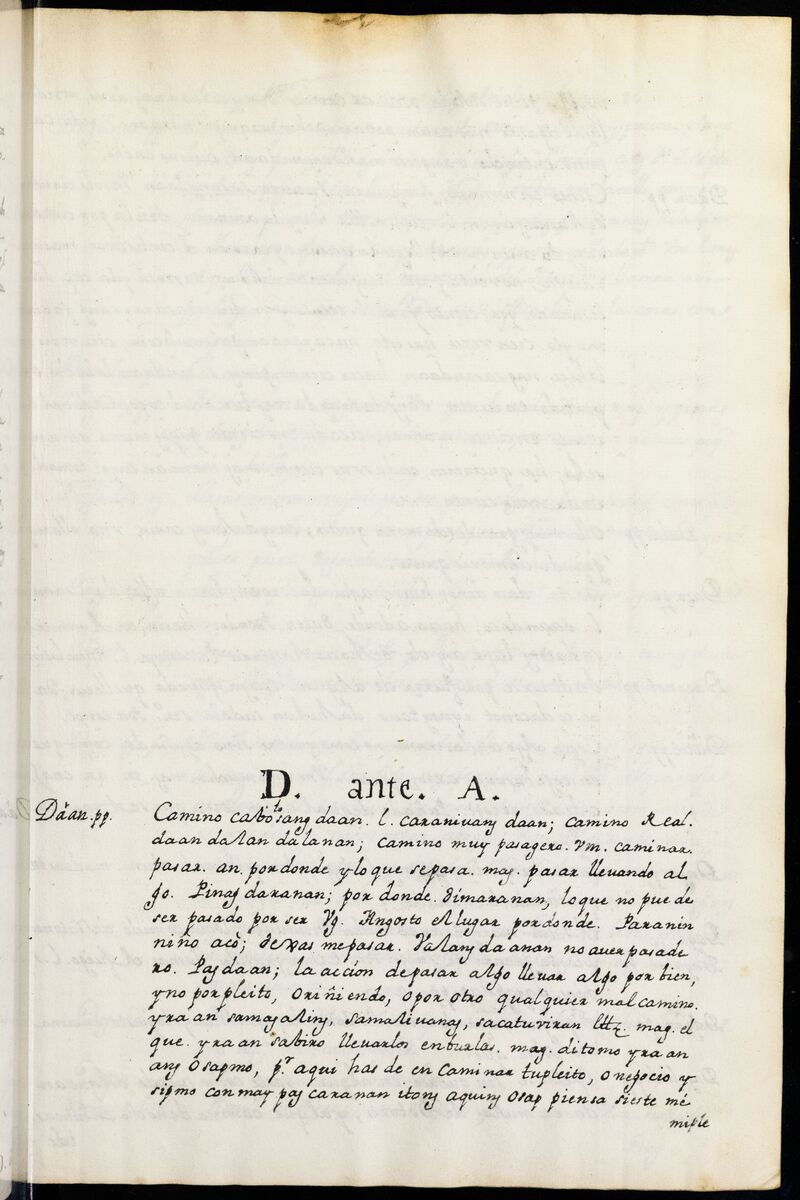 D. ante. A.
Dáan. pp. Camino cabotosang daan. l. caranivang daan; camino Real.
daan dalan dalanan; camino muy pasagero. Vm. caminar.
pasar. an. por donde y lo que se pasa. mag. pasar llevando al
go. Pinag daranan; por donde. di maranan, lo que no pue de
ser pasado por ser Vg. Angosto el lugar por donde. Paranin
niño acò; dexas me pasar. Valang da anan no aver pasade
ro. Pag daan; la acción de pasar algo llevar algo por bien,
y no por pleito, o riñiendo, o por otro qualquier mal camino.
yra an samagaling, samalivanag, sacatuviran mag. el
que. yra an sabiro llevarlos en burlas. mag. ditomo yra an
ang Osapmo, pr. aqui has de en Caminar tu pleito, o negocio y
sipmo con may pag caranan itong aquing Osap piensa si este mè
miple